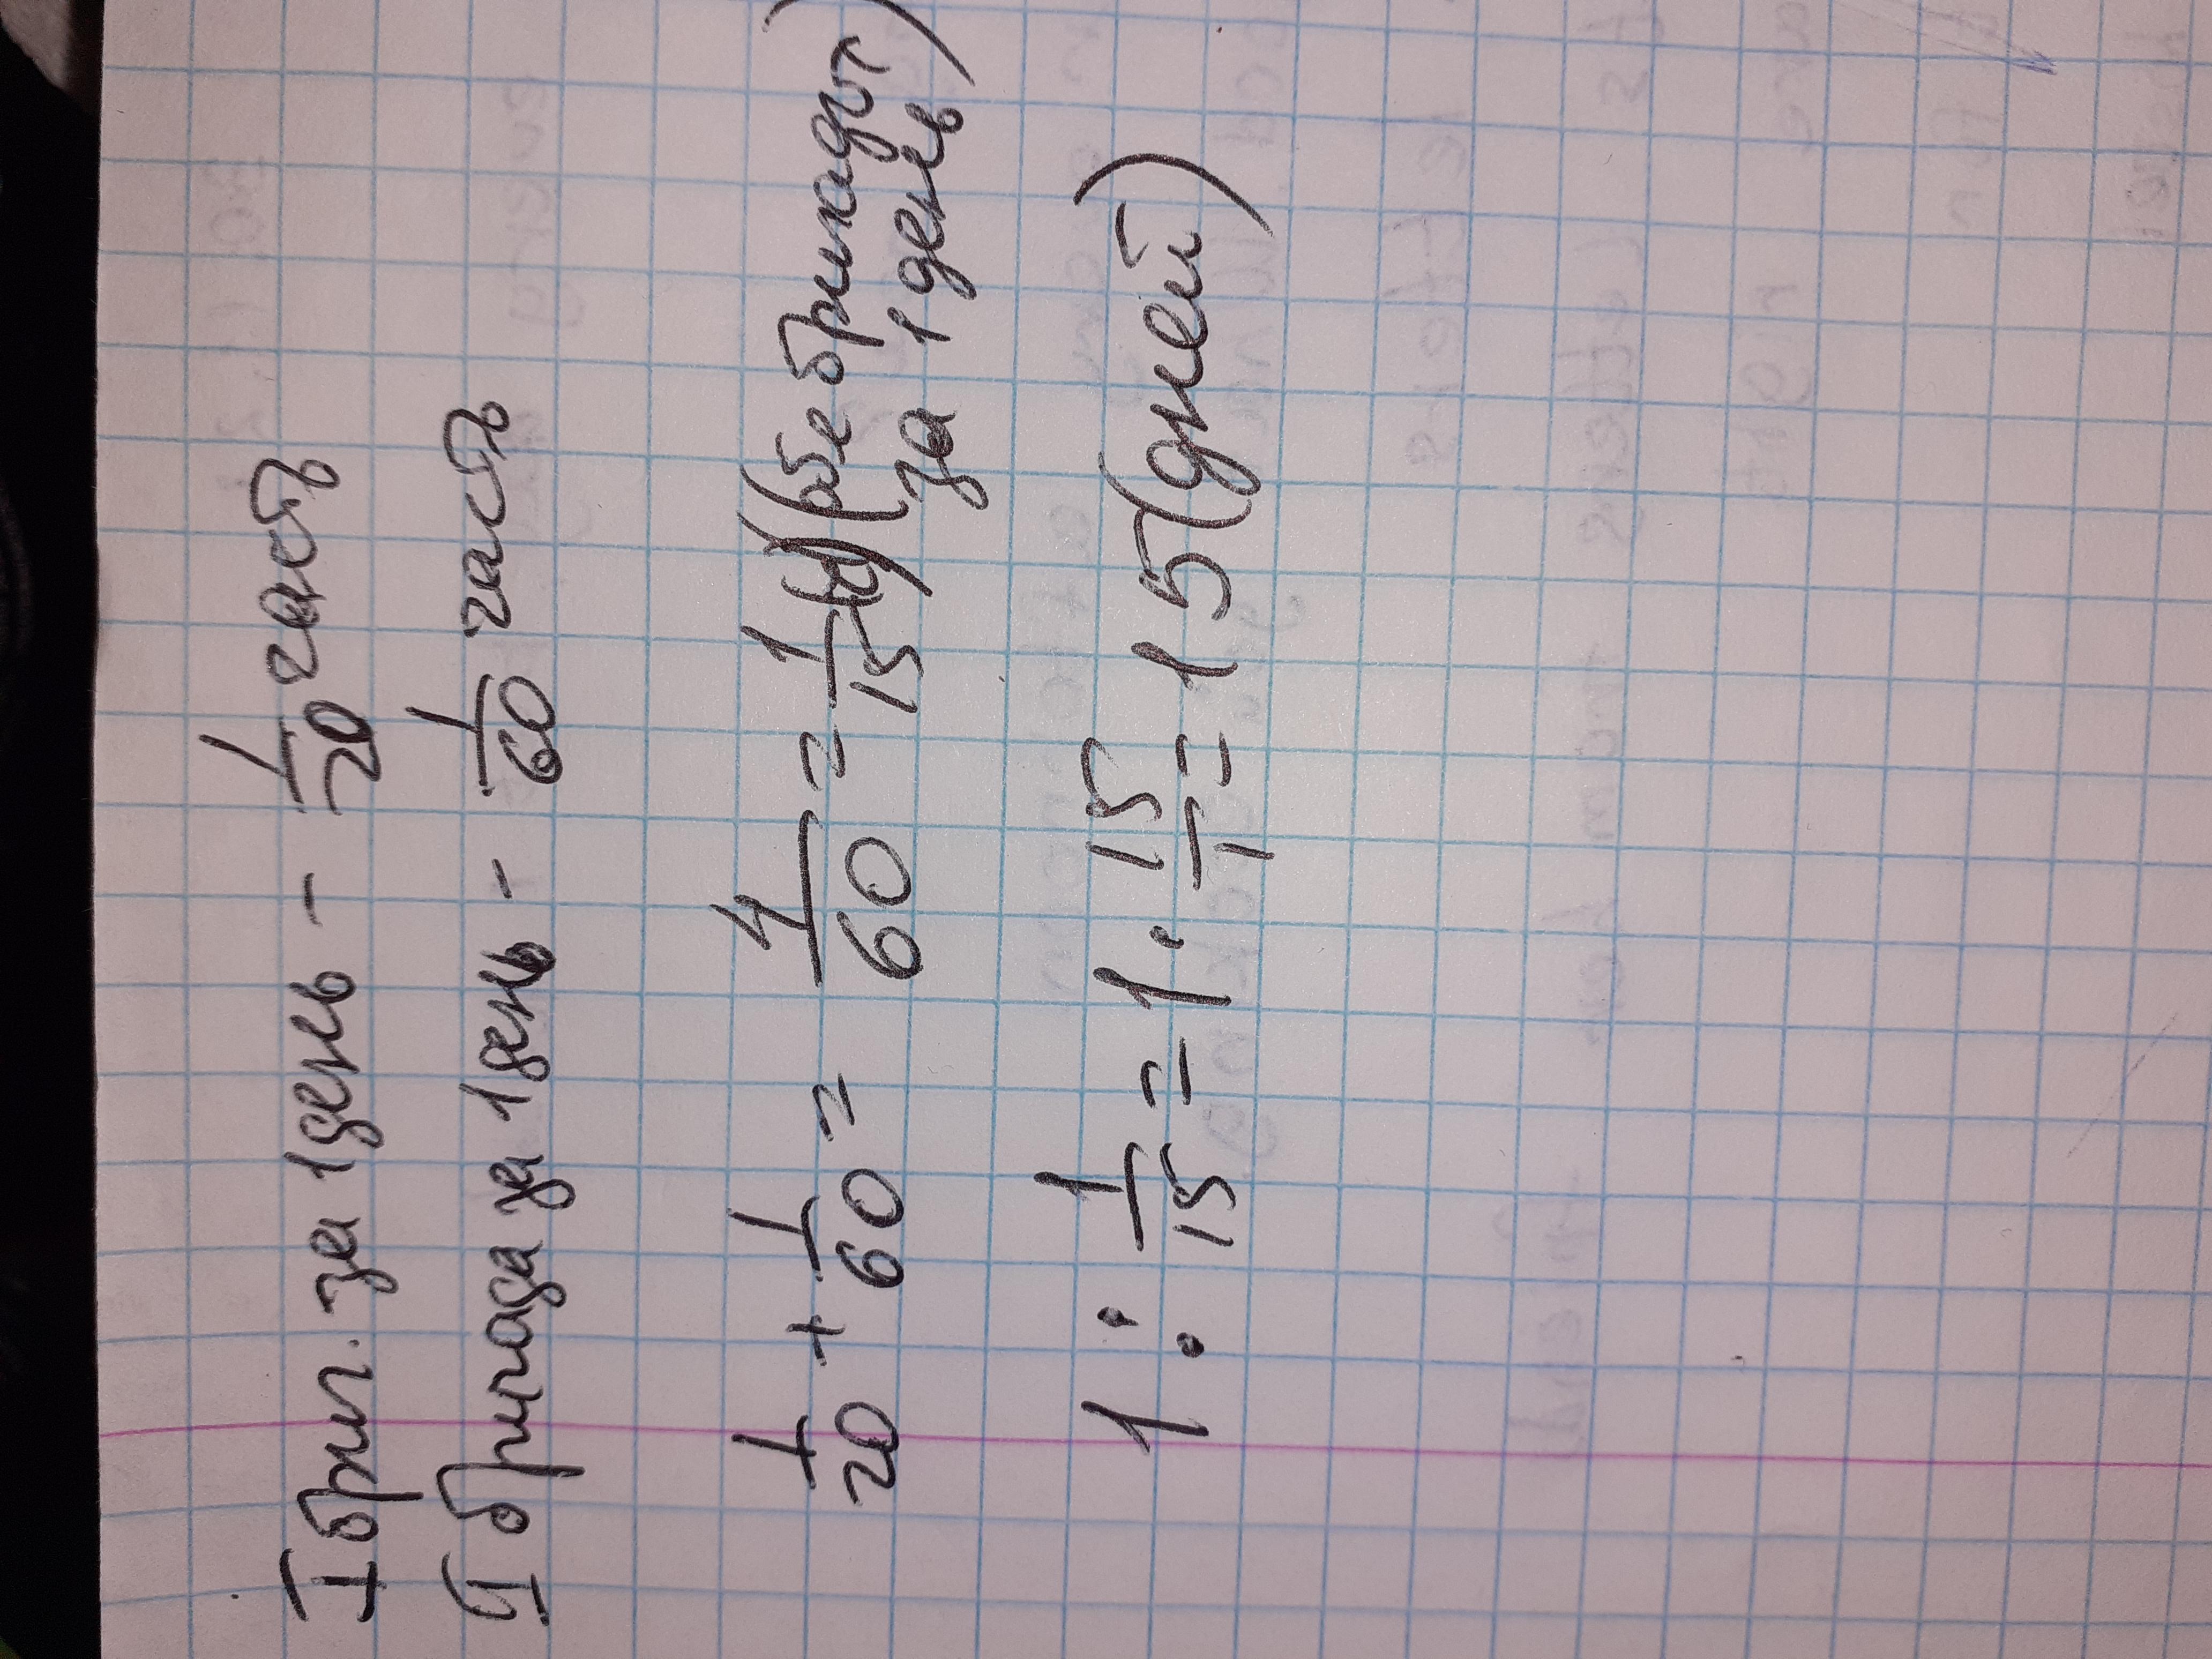 I бриг. за 1 день - 1/20 часть
II бригада за 1 день - 1/60 часть
1/20 + 1/60 = 4/60 = 1/15 (обе бригады
за 1 день)
1 : 1/15 = 1 · 15/1 = 15 (дней)